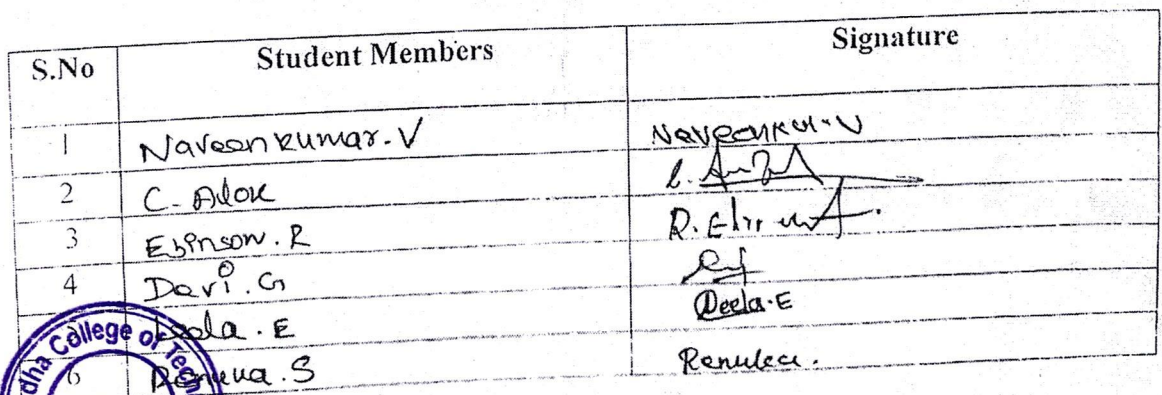 S.No Student Members Signature
1 Naveenkumar.V Naveenku.V
2 C. Alok
3 Ebinson.R R.
4 Devi.G
Leela.E Leela.E
6 Renuka.S Renuka.
dha College of Tech